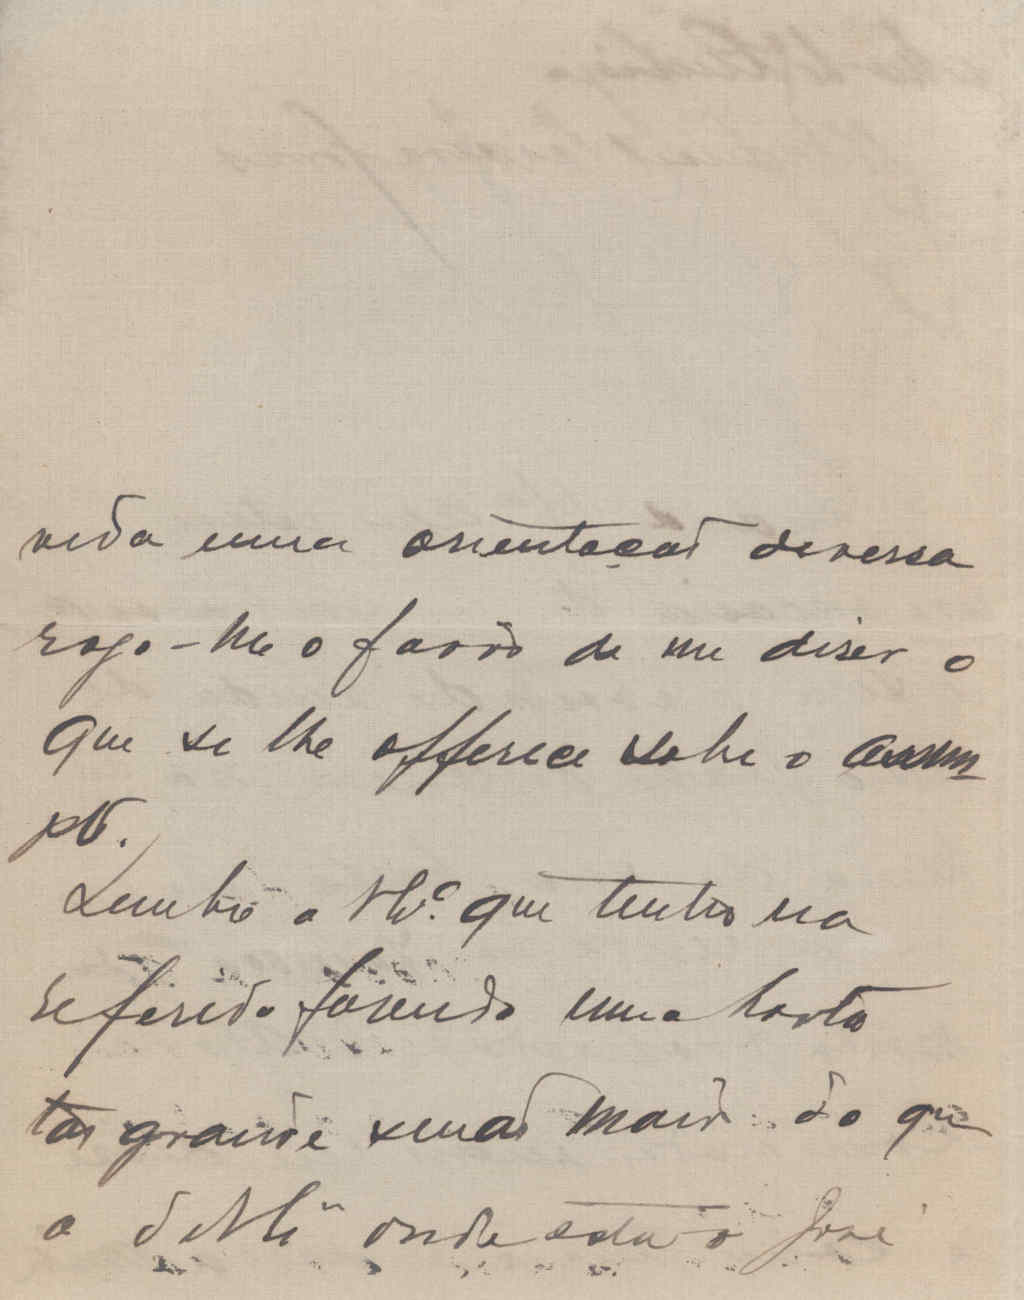 vida uma orientação deversa
rogo-lhe o favôr de me diser o
que se lhe offerece sobre o assum-
pto.
Lembro a V. que tenho na
referida fazenda uma horta
tão grande senão maior do que
a de onde está o José